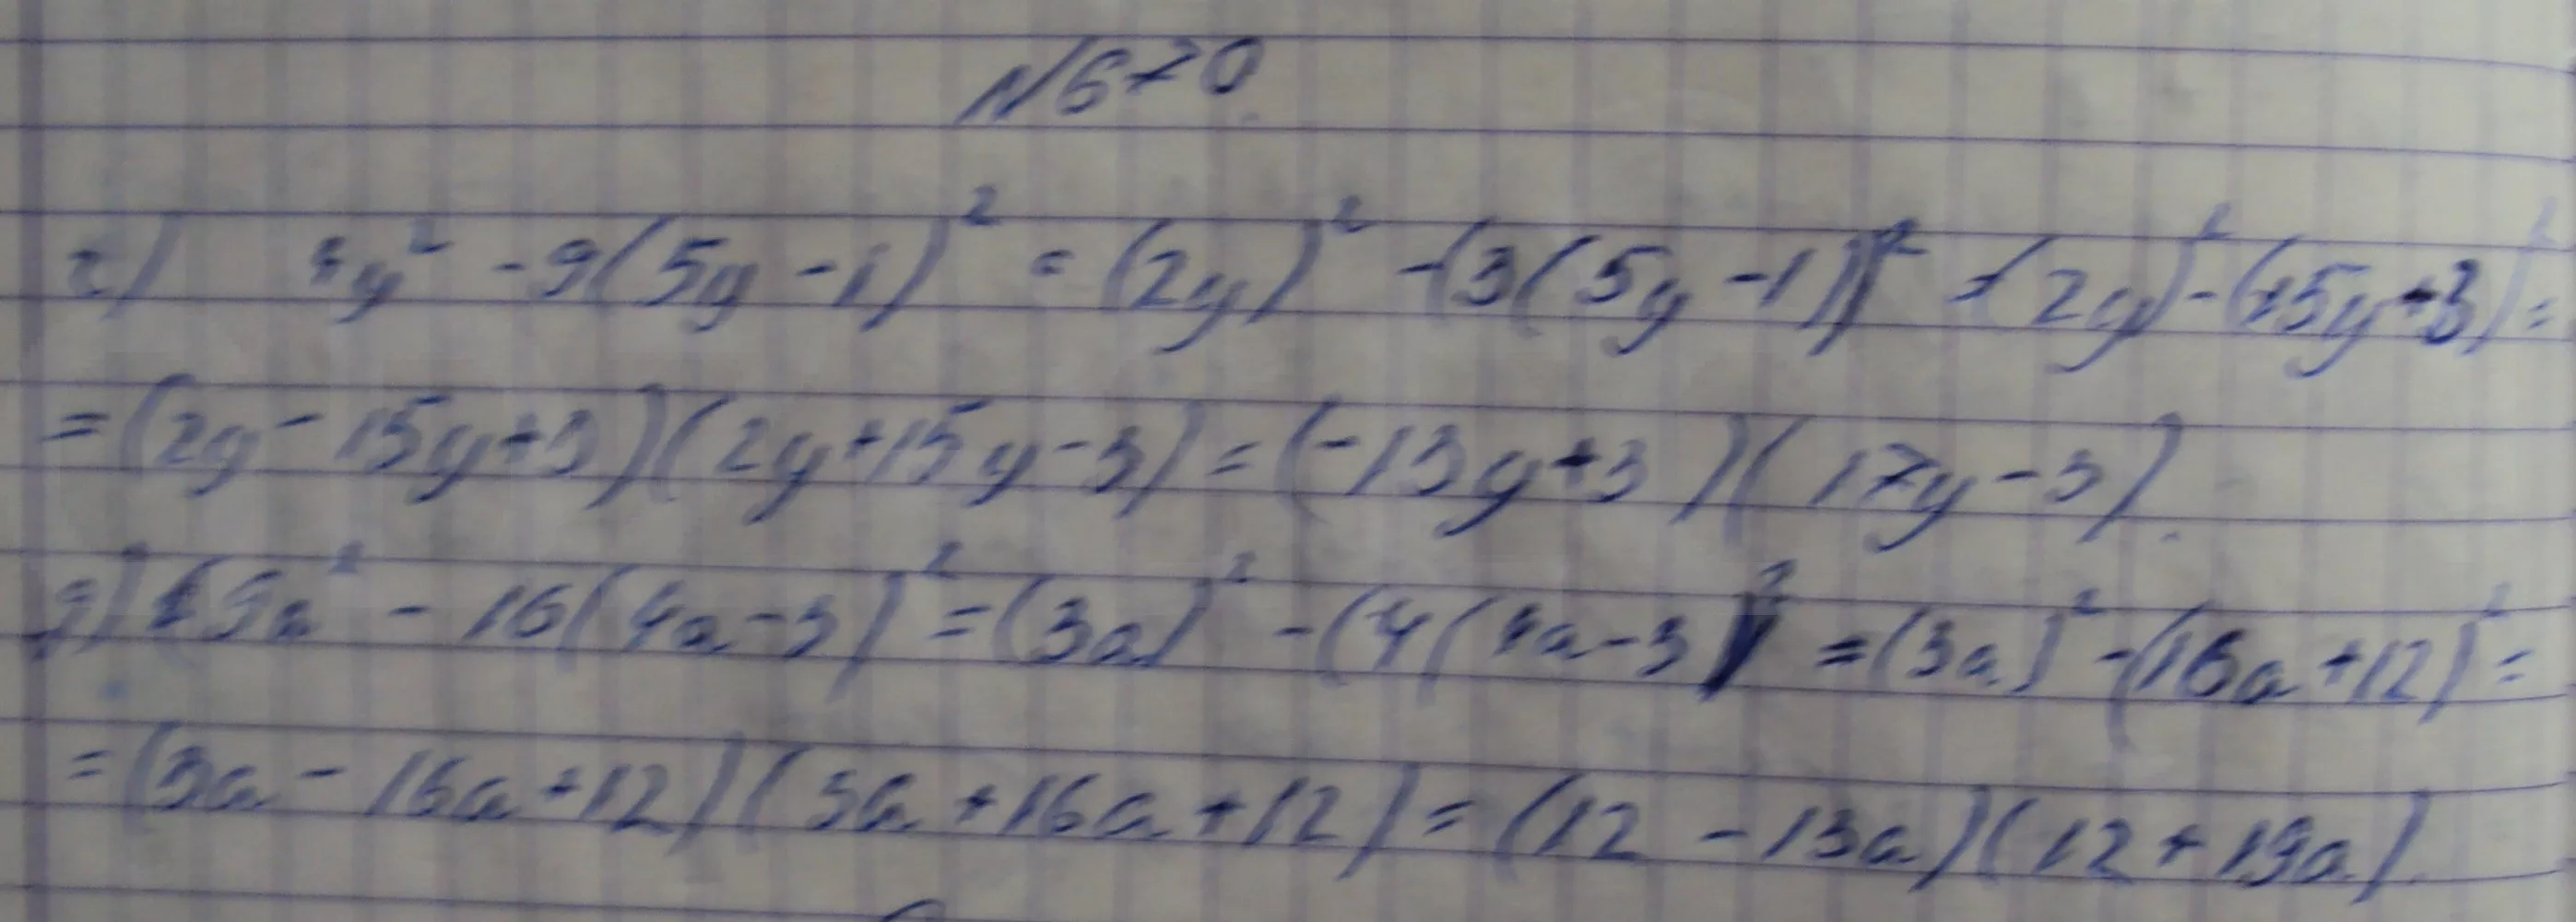 №670
г) 4y² - 9(5y - 1)² = (2y)² - (3(5y - 1))² = (2y)² - (15y + 3)² =
= (2y - 15y + 3)(2y + 15y - 3) = (-13y + 3)(17y - 3).
д) 9a² - 16(4a - 3)² = (3a)² - (4(4a - 3))² = (3a)² - (16a + 12)² =
= (3a - 16a + 12)(3a + 16a + 12) = (12 - 13a)(12 + 19a).